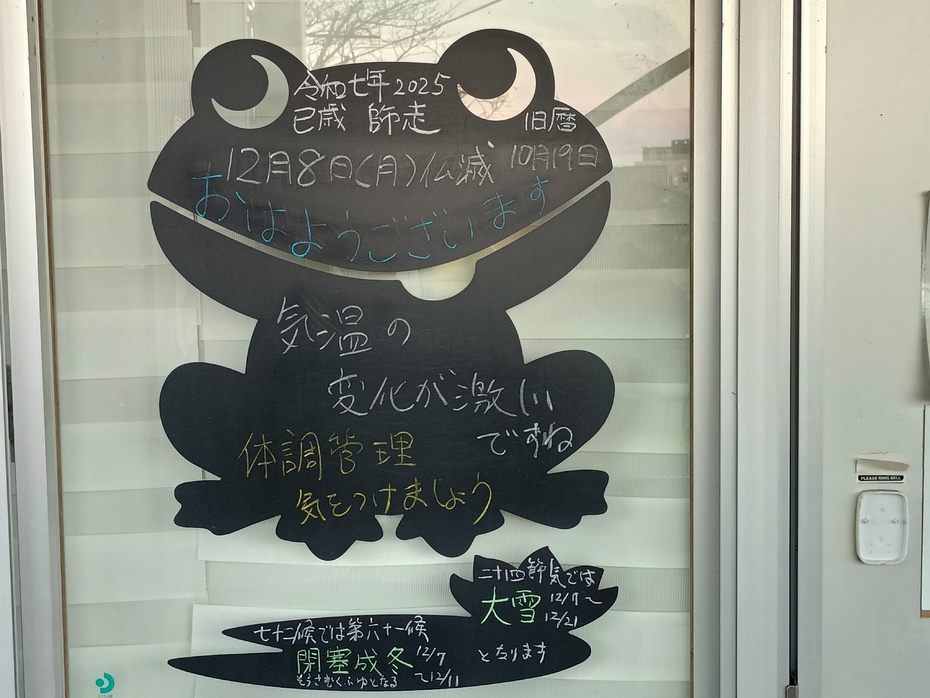 令和七年 2025
巳歳 師走 旧暦
12月8日(月)仏滅 10月19日
おはようございます
気温の
変化が激しい
ですね
体調管理
気をつけましょう
二十四節気では
大雪 12/7〜
12/21
となります
七十二候では第六十一候
閉塞成冬 12/7
〜12/11
そらさむくふゆとなる
PLEASE RING BELL